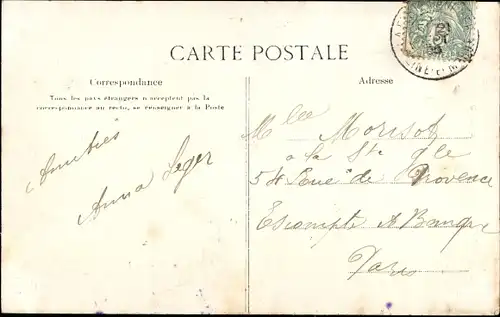 CARTE POSTALE
Correspondance
Tous les pays étrangers n'acceptent pas la
correspondance au recto, se renseigner à la Poste
Amitiés
Anna Leger
Adresse
Mlle Morisot
à la Sté Gle
54 Rue de Provence
Escompte & Banque
Paris